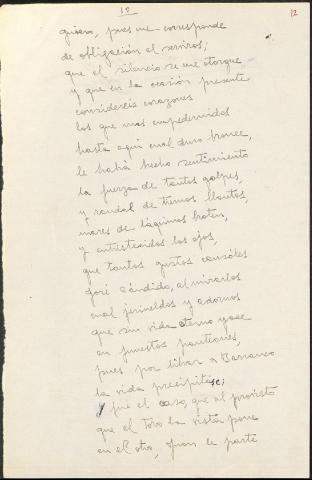 10
12
quiero, pues me corresponde
de obligación el serviros;
que el silencio se me otorgue
y que en la ocasión presente
consideréis corazones
los que mas empedernidos
hasta aquí cual duro bronce,
le habrá hecho sentimiento
la fuerza de tantos golpes,
y raudal de tiernos llantos,
mares de lágrimas broten,
y entristecidos los ojos,
que tantos gustos
José Cándido, al mirarlos
cual y adornos
que sin vida eterno yace
en funestos panteones,
pues por librar a Barranco
la vida precipitóse;
Y fué el caso, que al provisto
que el Toro la vista pone
en el otro, le parte